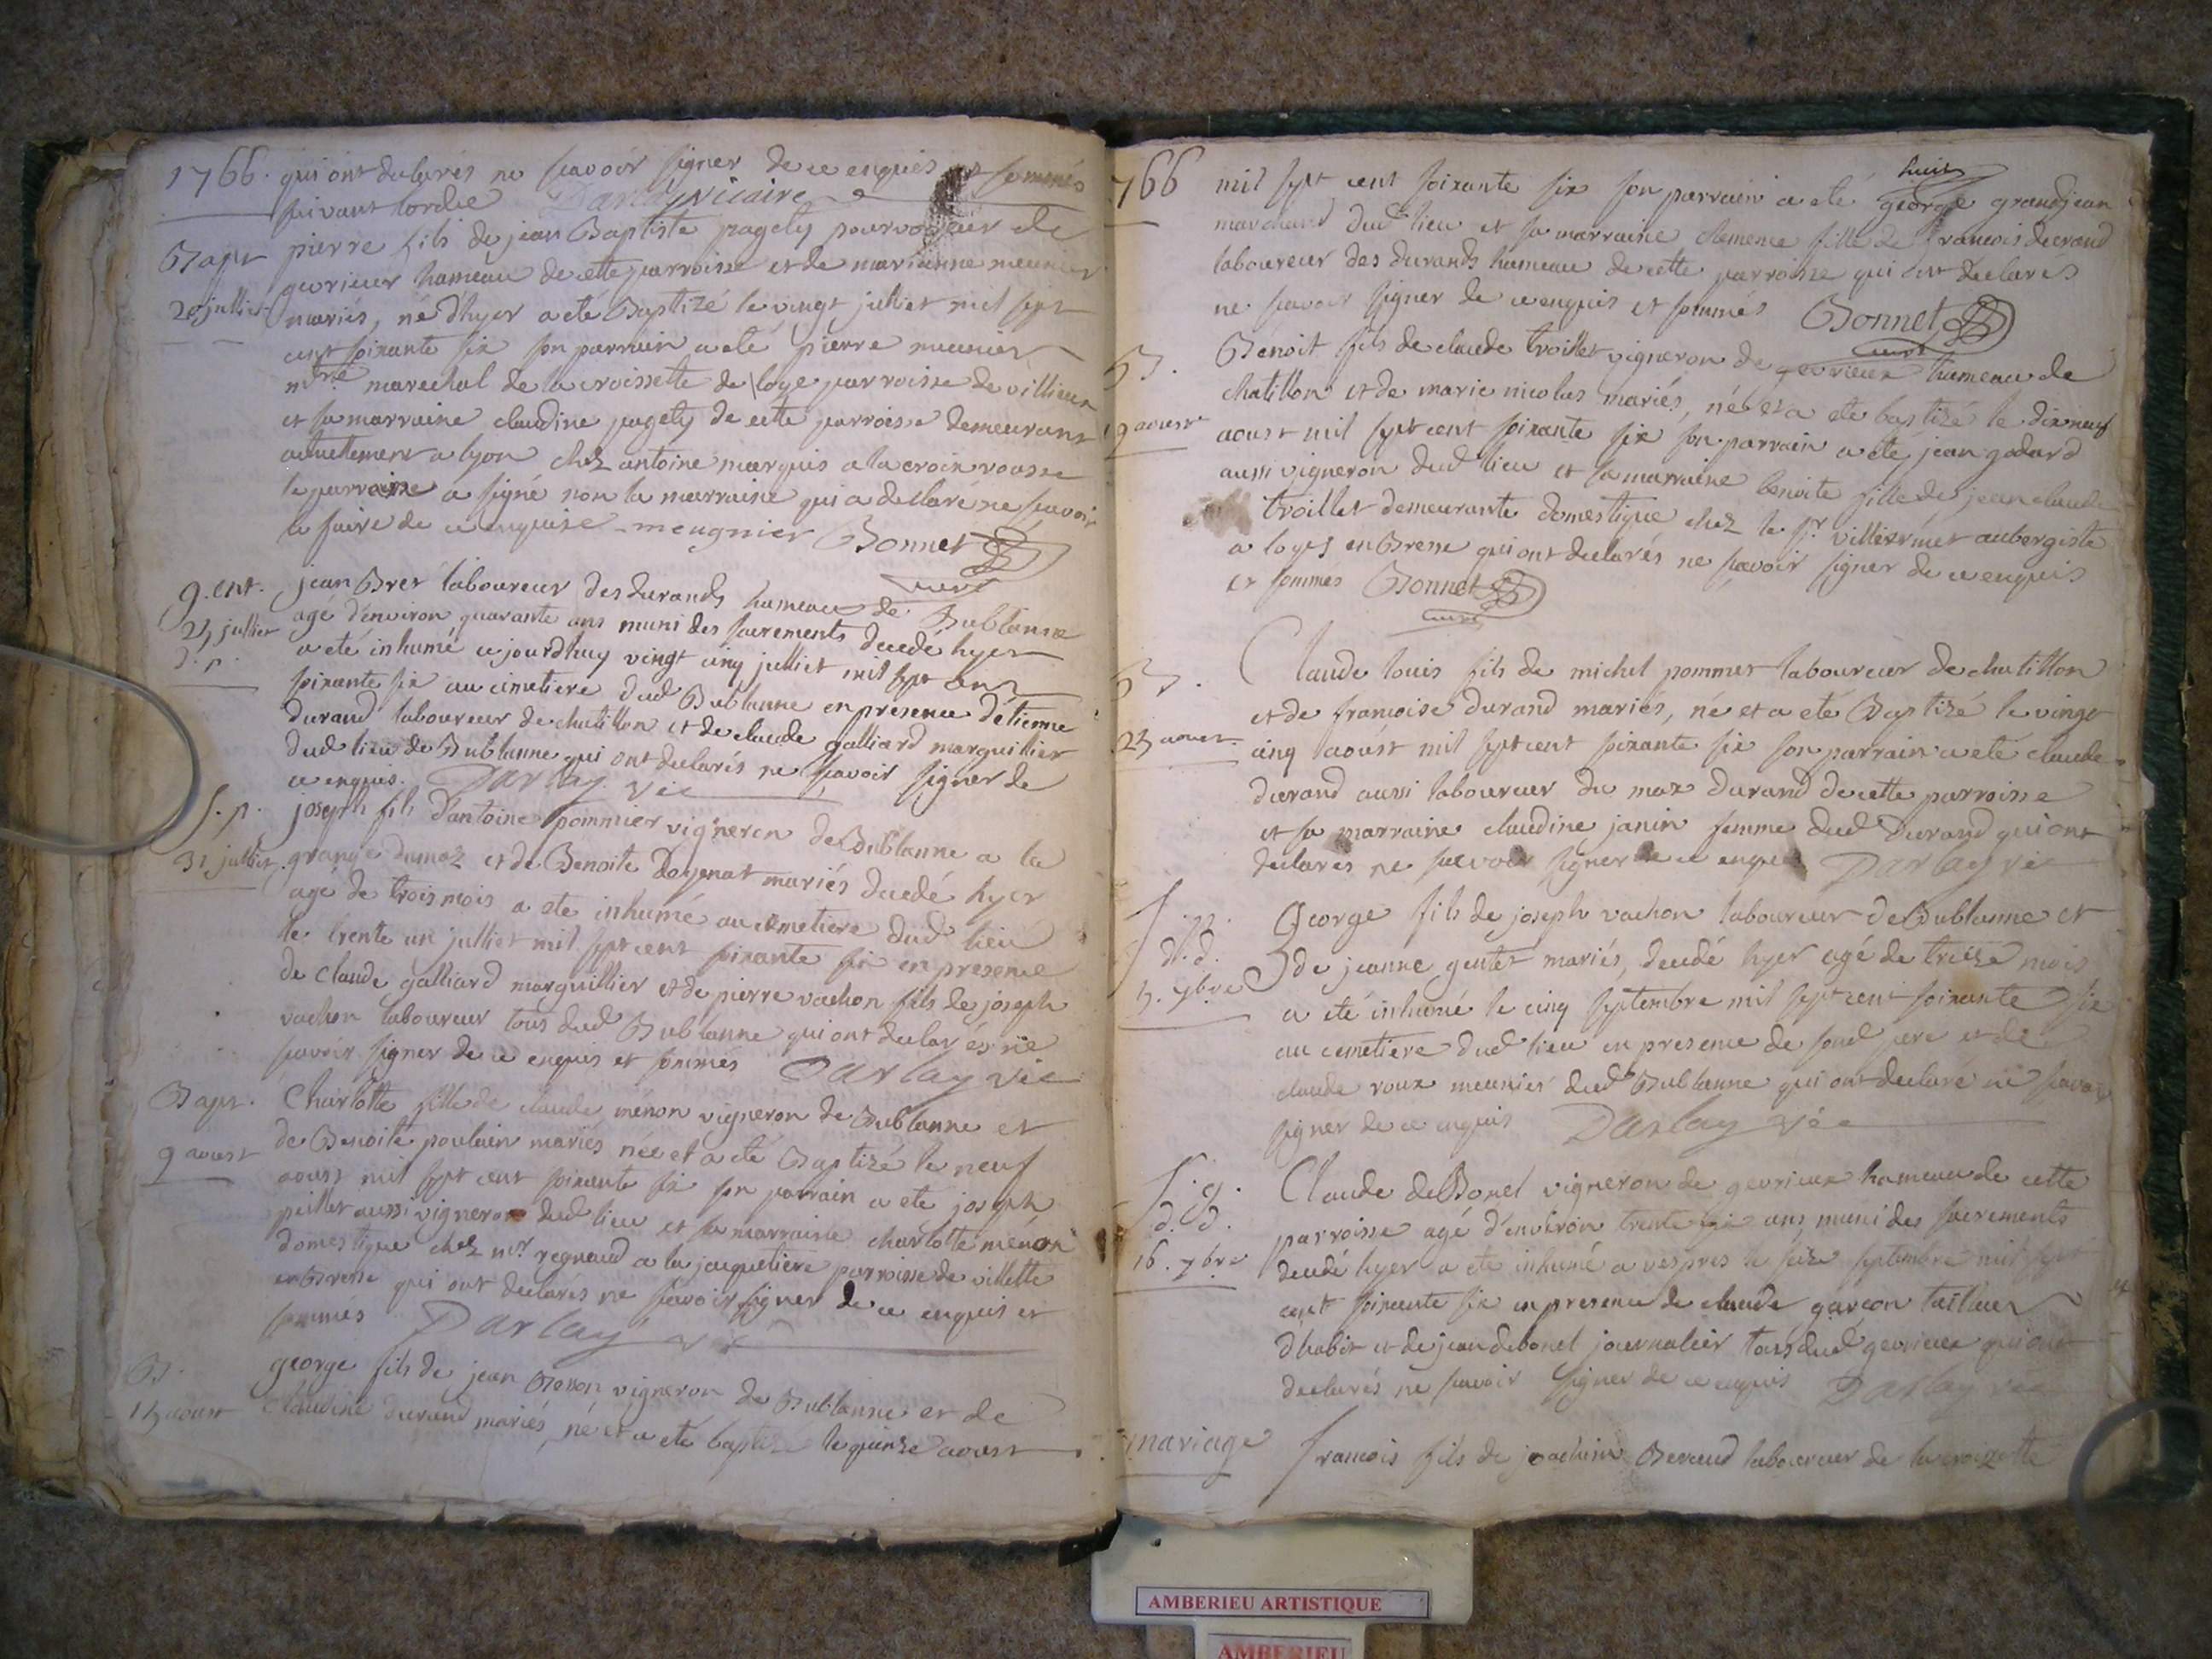 1766. qui ont declarés ne scavoir signer de ce enquis et sommés
suivant l'ordre Darlay vicaire
Bapt pierre fils de jean Baptiste pagety pourvoyeur de
gevrieux hameau de cette parroisse et de marianne meunier
20 julliet mariés, né d'hyer a eté Baptizé le vingt julliet mil sept
cent soixante six son parrain a eté pierre meunier
mtre marechal de la croissette de loye parroisse de villieux
et sa marraine claudine pagety de cette parroisse demeurant
actuellement a lyon chez antoine marquis a la croix rousse
le parraine a signé non la marraine qui a declaré ne scavoir
le faire de ce enquise meugnier Bonnet
curé
g. ent. jean Bret laboureur des durands hameau de Bublanne
25 julliet agé d'environ quarante ans muni des sacrements decedé hyer
d. p. a eté inhumé ce jourdhuy vingt cinq julliet mil sept cent
soixante six au cimetiere dud Bublanne en presence d'etienne
durand laboureur de chatillon et de claude galliard marguillier
dud lieu de Bublanne qui ont declarés ne scavoir signer de
ce enquis. Darlay vic
S. p. joseph fils d'antoine pommier vigneron de Bublanne a la
31 julliet. grange dumaz et de Benoite Doyenat mariés decedé hyer
agé de trois mois a ete inhumé au cemetiere dud lieu
le trente un julliet mil sept cent soixante six en presence
de claude galliard marguillier et de pierre vachon fils de joseph
vachon laboureur tous dud Bublanne qui ont declarés ne
scavoir signer de ce enquis et sommés Darlay vic
Bapt. Charlotte fille de claude ménon vigneron de Bublanne et
de Benoite poulain mariés née et a eté Baptizé le neuf
9 aoust aoust mil sept cent soixante six son parrain a ete joseph
peillet aussi vigneron dud lieu et sa marraine charlotte ménon
domestique chez mr. regnaud a la jaquetiere parroisse de villette
en Bresse qui ont declarés ne scavoir signer de ce enquis et
sommés Darlay vic
B. george fils de jean Besson vigneron de Bublanne et de
15 aoust claudine durand mariés, né et a eté baptizé le quinze aoust
766 mil sept cent soixante six son parrain a eté george grandjean
marchand dud lieu et sa marraine clemence fille de francois durand
laboureur des durands hameau de cette parroisse qui ont declarés
ne scavoir signer de ce enquis et sommés Bonnet
curé
B. Benoit fils de claude troillet vigneron de gevrieux hameau de
chatillon et de marie nicolas mariés, né et a eté baptizé le dixneuf
19 aoust aoust mil sept cent soixante six son parrain a eté jean godard
aussi vigneron dud lieu et sa marraine benoite fille de jean claude
troillet demeurante domestique chez le sr. aubergiste
a loyes en Bresse qui ont declarés ne scavoir signer de ce enquis
et sommés Bonnet
curé
B. Claude louis fils de michel pommet laboureur de chatillon
et de francoise durand mariés, né et a eté Baptizé le vingt
25 aoust cinq aoust mil sept cent soixante six son parrain a eté claude
durand aussi laboureur du maz durand de cette parroisse
et sa marraine claudine janin femme dud Durand qui ont
declarés ne scavoir signer de ce enquis Darlay vic
S. p. George fils de joseph vachon laboureur de Bublanne et
d. d. de jeanne gentet mariés, decedé hyer agé de treize mois
5. 7bre a eté inhumé le cinq septembre mil sept cent soixante six
au cemetiere dud lieu en presence de sond pere et de
claude roux meunier dud Bublanne qui ont declaré ne scavoir
signer de ce enquis Darlay vic
S. g. Claude deBonel vigneron de gevrieux hameau de cette
d. d. parroisse agé d'environ trente six ans, muni des sacrements
16. 7bre decedé hyer a eté inhumé a vespres le seize septembre mil sept
cent soixante six en presence de claude garcon tailleur
d'habit et de jean debonel journalier tous dud gevrieux qui ont
declarés ne scavoir signer de ce enquis Darlay vic
mariage francois fils de joachim Beraud laboureur de la croizette
AMBERIEU ARTISTIQUE
AMBERIEU